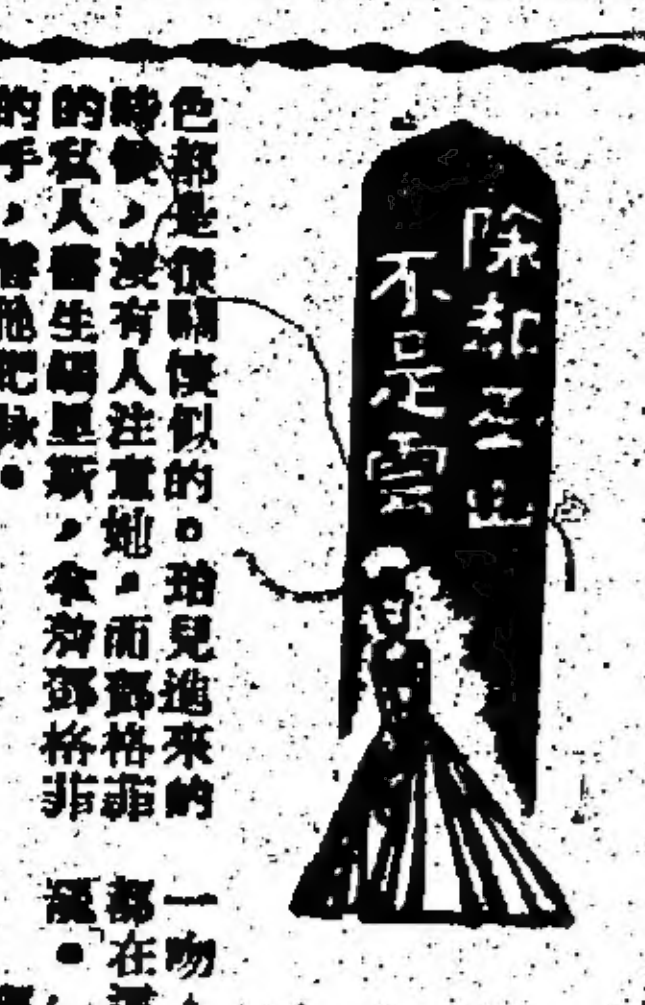 除却巫山
不是雲
色都是很關懷似的。珀兒進來的
時候,沒有人注意她,而 格菲
的私人醫生 里斯,拿着 格菲
的手,替他把脉。
一吻
都在